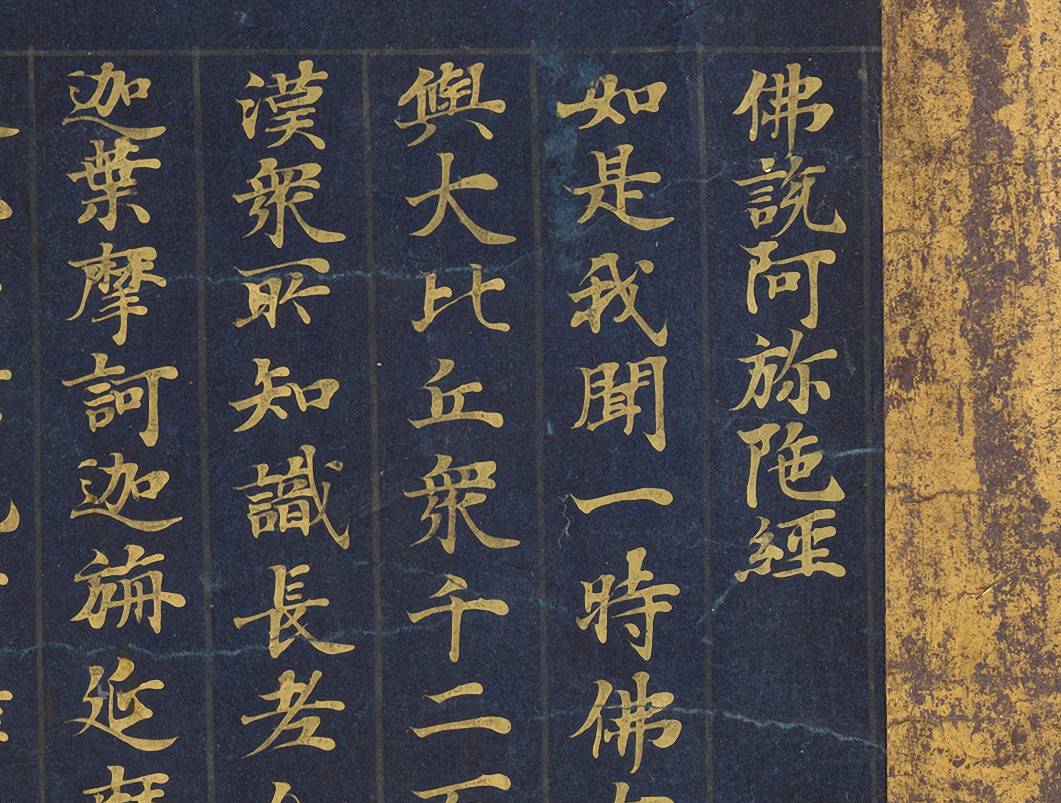 佛說阿弥陁經
如是我聞一時佛
與大比丘衆千二百
漢衆所知識長老
迦葉摩訶迦旃延摩